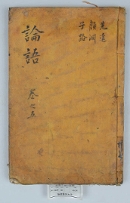 先進
顏淵
子路
論語
卷之五